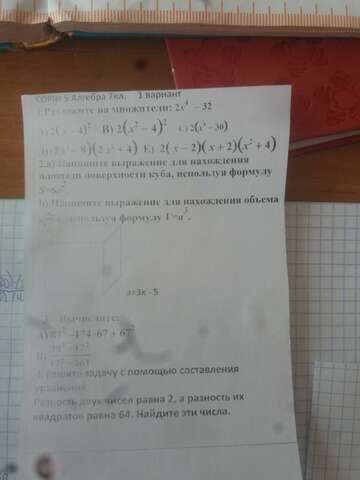 СОР№ 5 Алгебра 7кл. 1 вариант
1.Разложите на множители: 2x⁴ − 32
2(x − 4)² B) 2(x² − 4)² C) 2(x⁴ − 30)
E) 2(x − 2)(x + 2)(x² + 4)
2.a) Напишите выражение для нахождения
площади поверхности куба, используя формулу
S=6a²
b) Напишите выражение для нахождения объема
используя формулу V=a³.
a=3x - 5
3. Вычислите:
A) 87² −174·67 + 67²
B)
4. Решите задачу с помощью составления
уравнения
Разность двух чисел равна 2, а разность их
квадратов равна 64. Найдите эти числа.